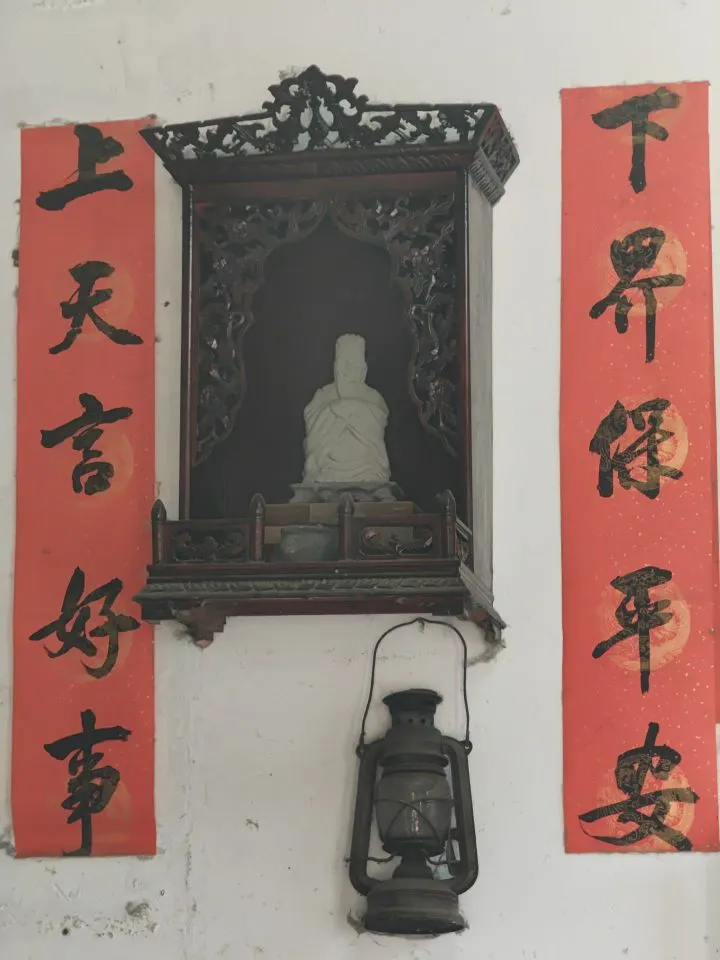 上天言好事
下界保平安